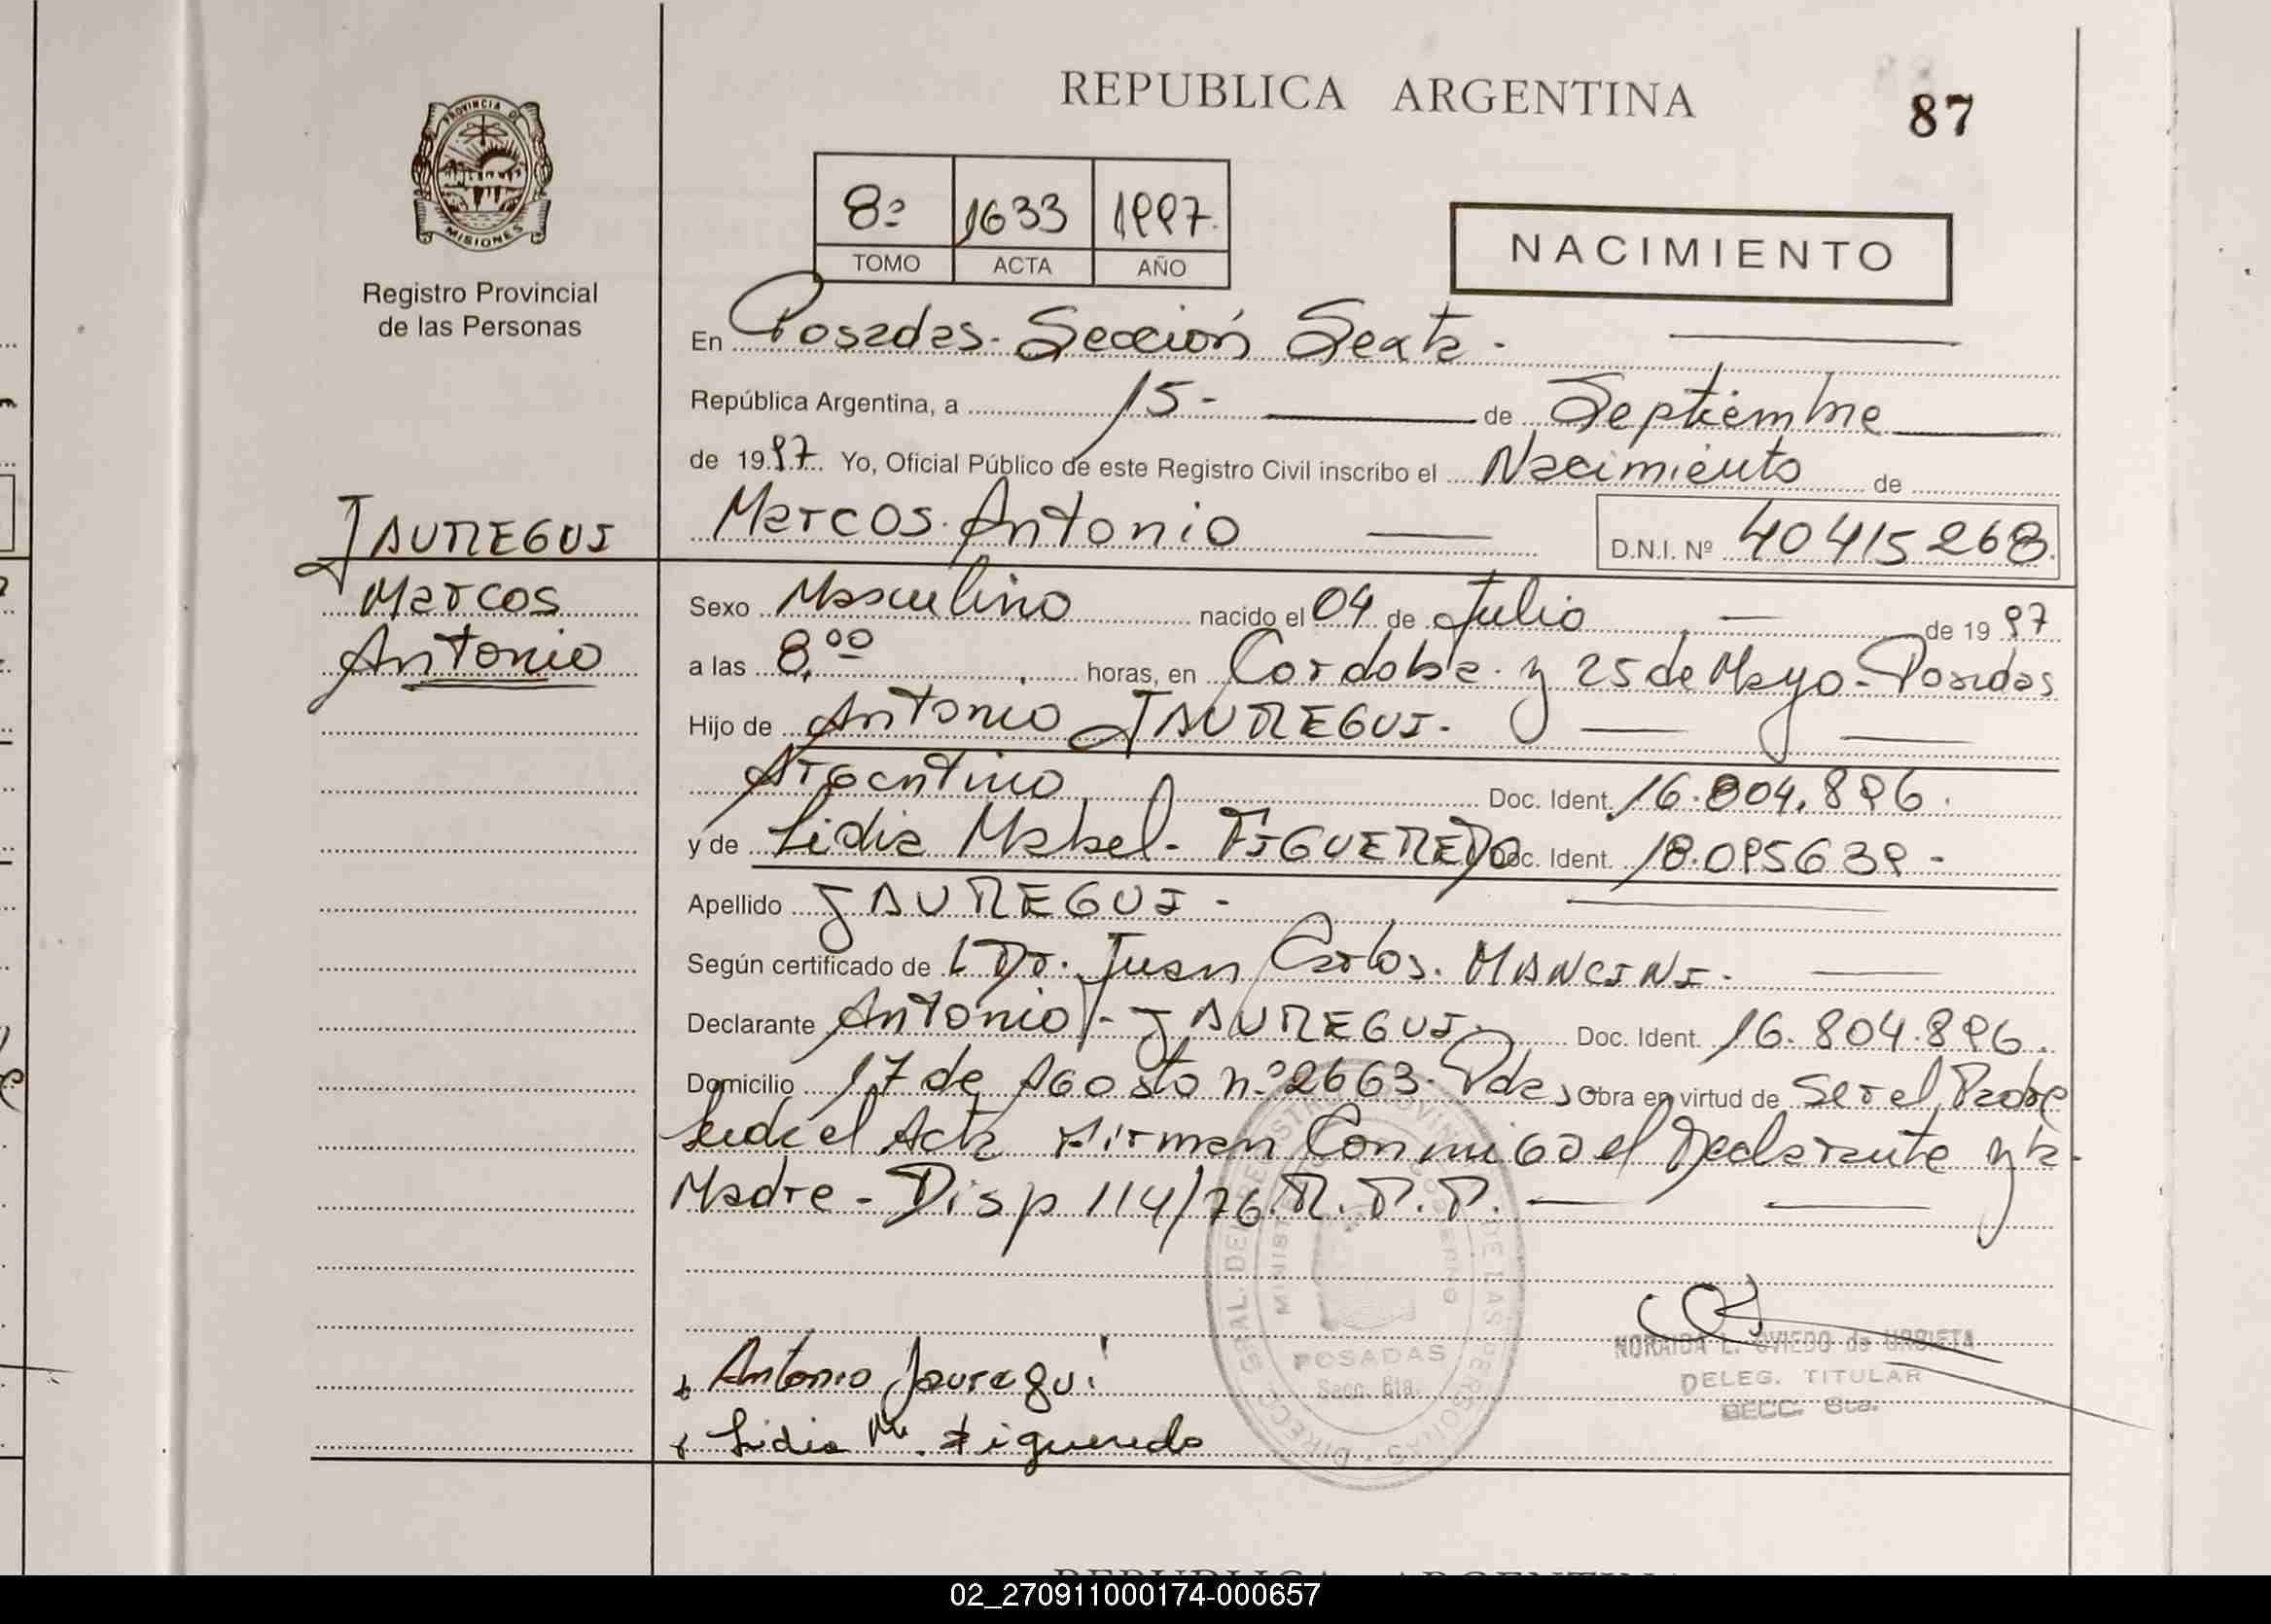 REPUBLICA ARGENTINA
87
PROVINCIA DE
MISIONES
Registro Provincial
de las Personas
8º 1633 1997.
TOMO ACTA AÑO
NACIMIENTO
En Posadas - Sección Sexta -
República Argentina, a 15 - de Septiembre
de 1997 Yo, Oficial Público de este Registro Civil inscribo el Nacimiento de
Marcos Antonio D.N.I. Nº 40415268.
JAUREGUI
Marcos
Antonio
Sexo Masculino nacido el 04 de Julio de 1997
a las 8,00 horas, en Cordoba y 25 de Mayo - Posadas
Hijo de Antonio JAUREGUI -
Argentino Doc. Ident. 16.804.896.
y de Lidia Mabel - FIGUEREDO Doc. Ident. 18.095639 -
Apellido JAUREGUI -
Según certificado de Dr. Juan Carlos MANCINI -
Declarante Antonio - JAUREGUI Doc. Ident. 16.804.896.
Domicilio 17 de Agosto nº 2663 - Pdas Obra en virtud de Ser el Padre
Leida el Acta Firman Conmigo el Declarante y la
Madre - Disp 114/76. R.P.P.
DIRECC. GRAL. DEL REGISTRO PROVINCIAL DE LAS PERSONAS
MINISTERIO DE GOBIERNO
POSADAS
Secc. 6ta.
NORAIDA L. OVIEDO de URRIETA
DELEG. TITULAR
SECC. 6ta.
Antonio Jauregui
Lidia M. Figueredo
REPUBLICA ARGENTINA
02_270911000174-000657